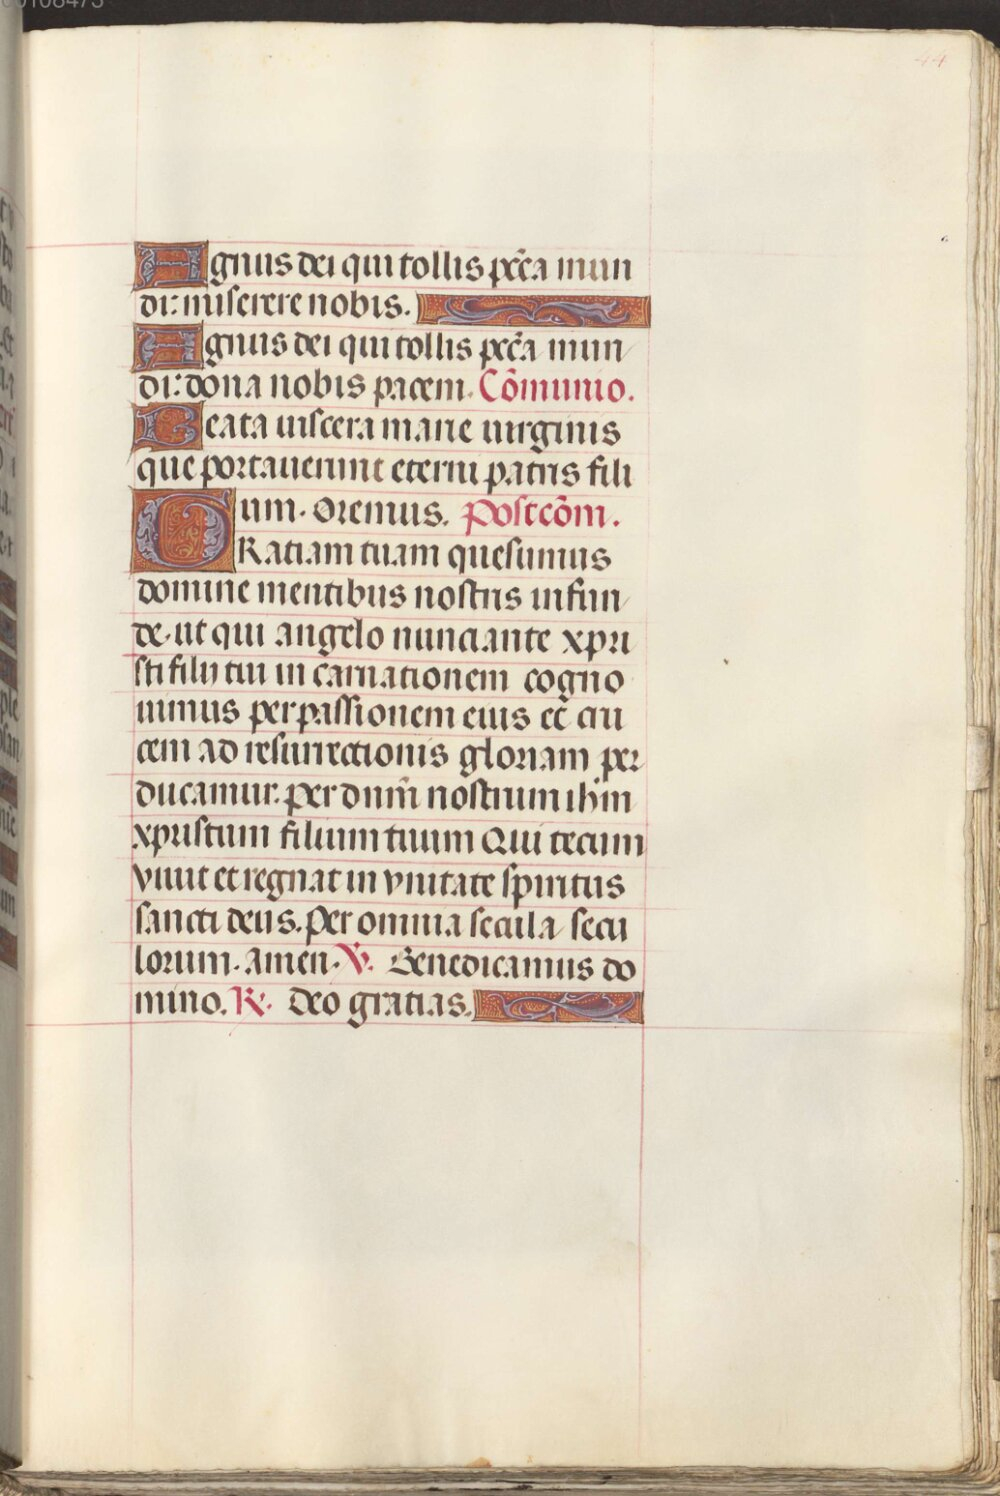 44
Agnus dei qui tollis pc̃ca mun
di: miserere nobis.
Agnus dei qui tollis pc̃ca mun
di: dona nobis pacem. Cõmunio.
Beata uiscera marie uirginis
que portauerunt eterni patris fili
um. Oremus. Postcõm.
GRatiam tuam quesumus
domine mentibus nostris infun
de. ut qui angelo nunciante xpri
sti filij tui in carnationem cogno
uimus per passionem eius et cru
cem ad resurrectionis gloriam per
ducamur. Per dnm̃ nostrum ihm̃
xpristum filium tuum Qui tecum
viuit et regnat in vnitate spiritus
sancti deus. Per omnia secula secu
lorum. amen. ℣. Benedicamus do
mino. ℟. Deo gratias.